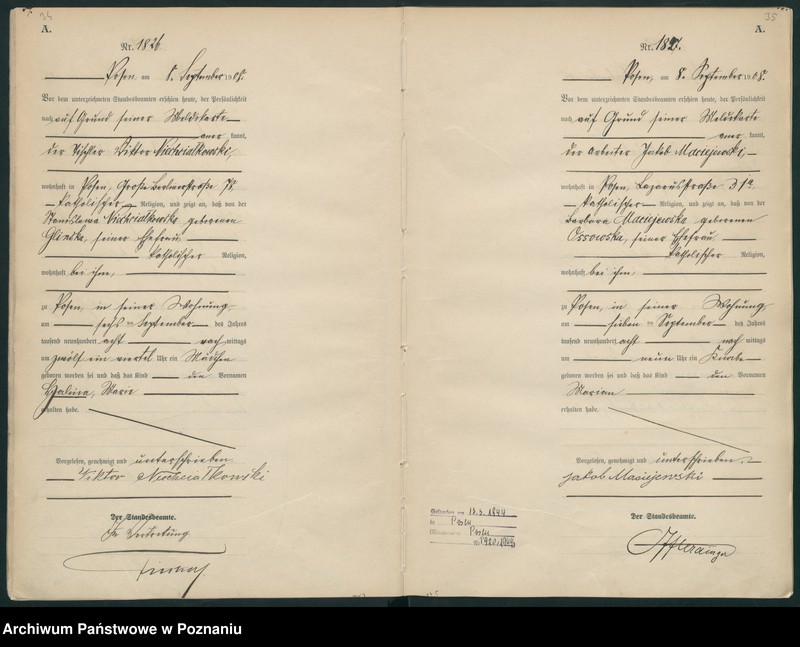 34
A.
Nr. 1826
Posen, am 8. September 1908.
Vor dem unterzeichneten Standesbeamten erschien heute, der Persönlichkeit
nach auf Grund seiner Meldekarte
aner kannt,
der Tischler Viktor Niedzwialkowski,
wohnhaft in Posen, Große Berlinerstraße
katholischer Religion, und zeigt an, daß von der
Stanislawa Niedzwialkowska geborenen
Glinska, seiner Ehefrau
katholischer Religion,
wohnhaft bei ihm,
zu Posen, in seiner Wohnung
am sechsten September des Jahres
tausend neunhundert acht nach mittags
um zwölf ein viertel Uhr ein Mädchen
geboren worden sei und daß das Kind den Vornamen
Halina, Marie
erhalten habe.
Vorgelesen, genehmigt und unterschrieben
Viktor Niedzwialkowski
Der Standesbeamte.
In Vertretung
35
A.
Nr. 1827.
Posen, am 8. September 1908.
Vor dem unterzeichneten Standesbeamten erschien heute, der Persönlichkeit
nach auf Grund seiner Meldekarte
aner kannt,
der Arbeiter Jakob Maciejewski,
wohnhaft in Posen, Lazarusstraße 31a
katholischer Religion, und zeigt an, daß von der
Barbara Maciejewska geborenen
Ossowska, seiner Ehefrau
katholischer Religion,
wohnhaft bei ihm,
zu Posen, in seiner Wohnung
am sieben ten September des Jahres
tausend neunhundert acht nach mittags
um neun Uhr ein Knabe
geboren worden sei und daß das Kind den Vornamen
Marian
erhalten habe.
Vorgelesen, genehmigt und unterschrieben
Jakob Maciejewski
Der Standesbeamte.
Gestorben am 13.3.1944
in Posen
Posen
Archiwum Państwowe w Poznaniu